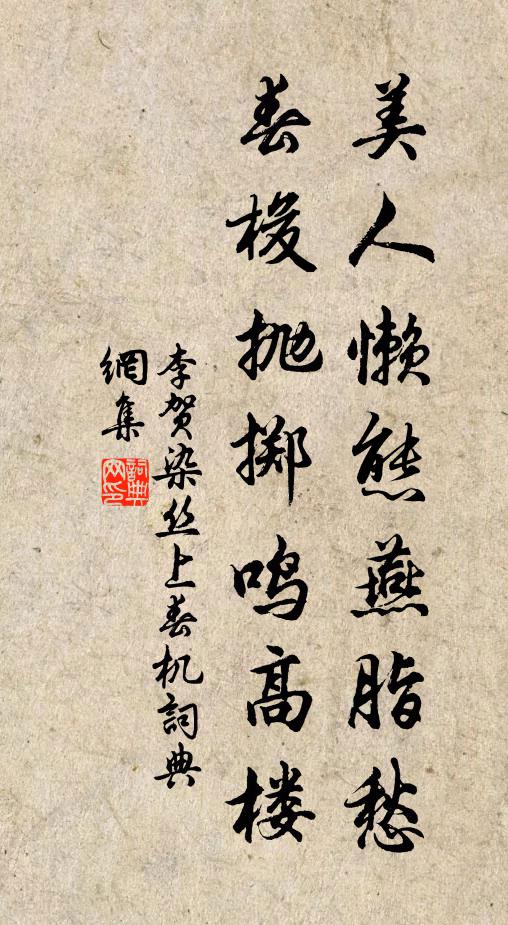 美人懒态燕脂愁
春梭抛掷鸣高楼
李贺染丝上春机詞典
網集
詞典网印